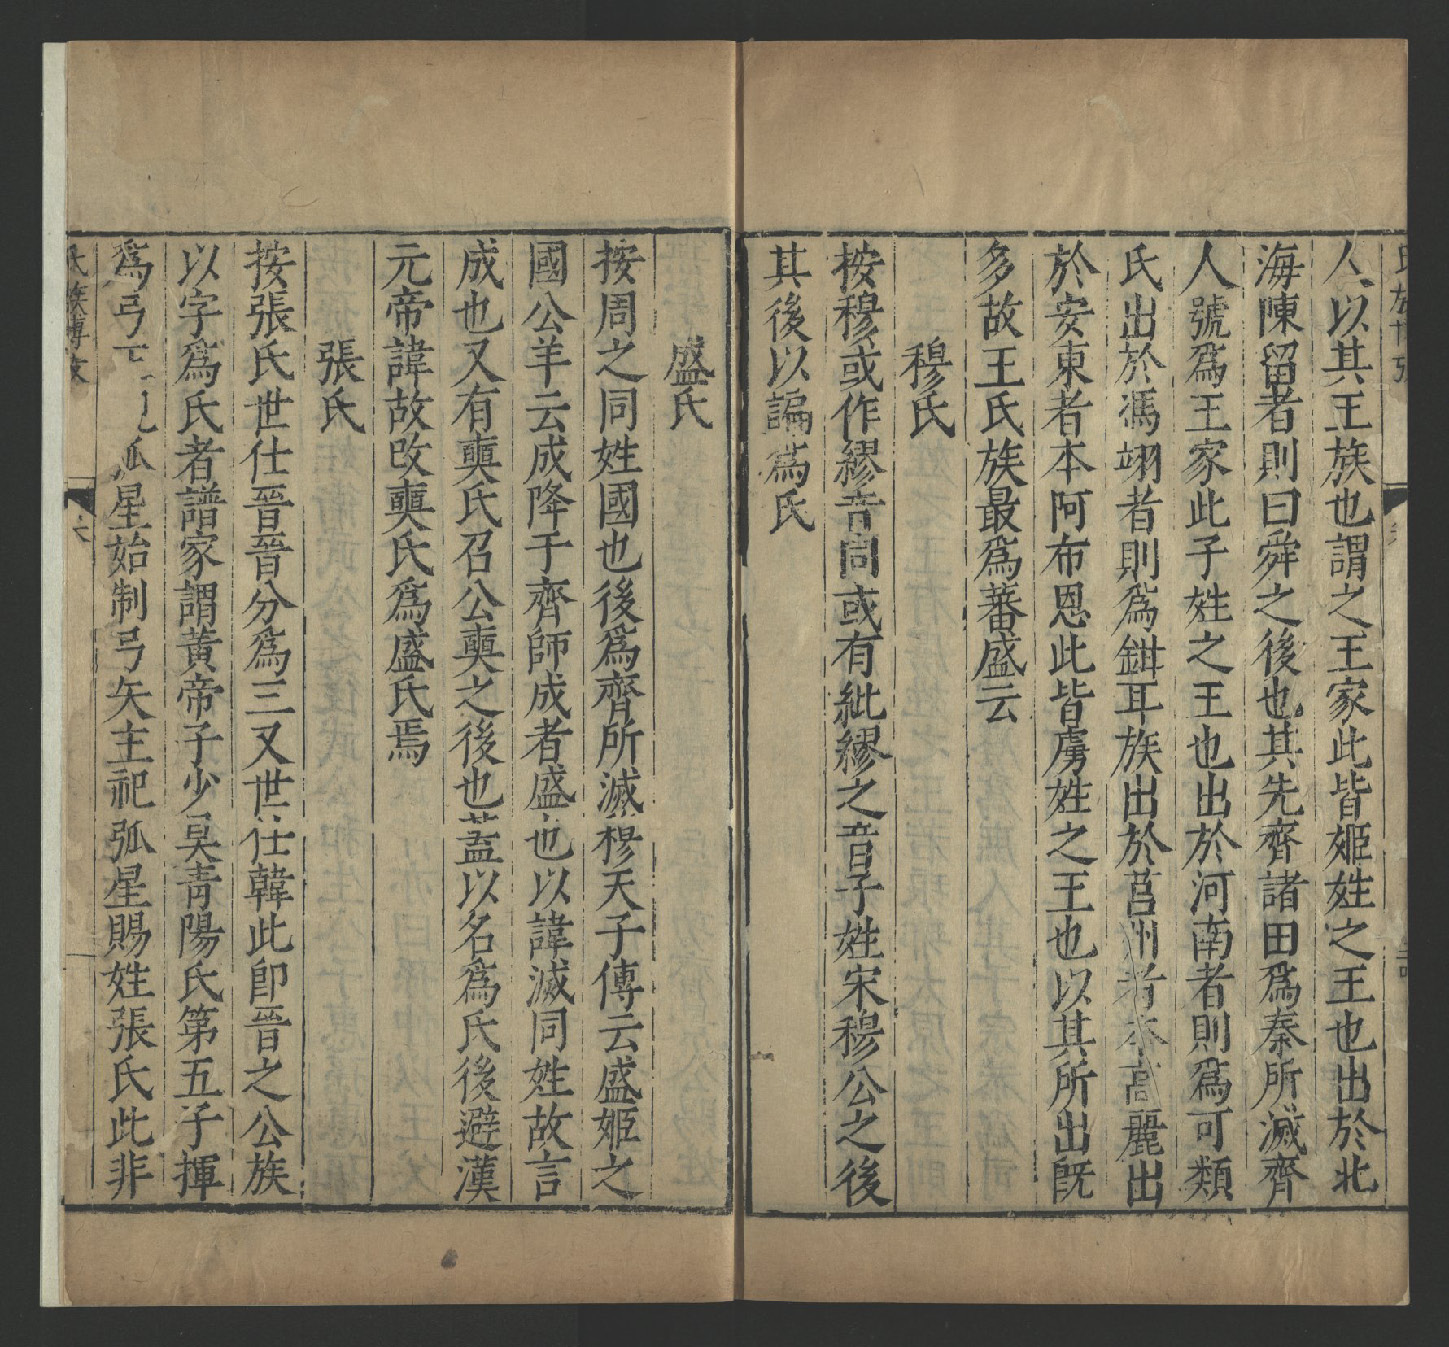 人以其王族也謂之王家此皆姬姓之王也出於北
海陳留者則曰舜之後也其先齊諸田爲秦所滅齊
人號爲王家此子姓之王也出於河南者則爲可類
氏出於馮翊者則爲鉗耳族出於莒州者本高麗出
於安東者本阿布恩此皆虜姓之王也以其所出旣
多故王氏族最爲蕃盛云
穆氏
按穆或作繆音同或有紕繆之音子姓宋穆公之後
其後以諡爲氏
盛氏
按周之同姓國也後爲齊所滅穆天子傳云盛姬之
國公羊云成降于齊師成者盛也以諱滅同姓故言
成也又有奭氏召公奭之後也蓋以名爲氏後避漢
元帝諱故改奭氏爲盛氏焉
張氏
按張氏世仕晉晉分爲三又世仕韓此卽晉之公族
以字爲氏者譜家謂黃帝子少昊青陽氏第五子揮
爲弓弧星始制弓矢主祀弧星賜姓張氏此非
氏族博攷